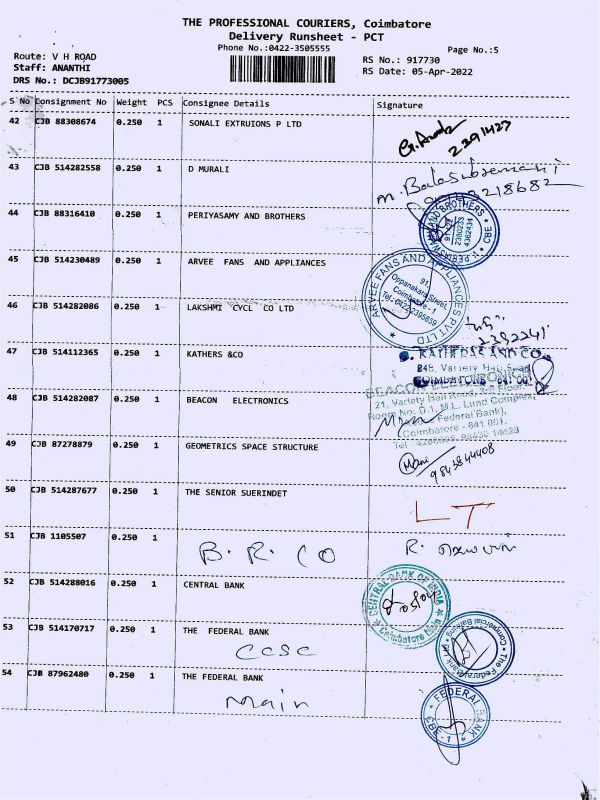 THE PROFESSIONAL COURIERS, Coimbatore
Delivery Runsheet - PCT
Phone No.:0422-3505555
Page No.:5
Route: V H ROAD
Staff: ANANTHI
DRS No.: DCJB91773005
RS No.: 917730
RS Date: 05-Apr-2022
S No Consignment No Weight PCS Consignee Details Signature
42 CJB 88308674 0.250 1 SONALI EXTRUIONS P LTD
2391423
43 CJB 514282558 0.250 1 D MURALI
M. Balasubramani
44 CJB 88316410 0.250 1 PERIYASAMY AND BROTHERS
AND BROTHERS
CBE
2380233
4362434
45 CJB 514230489 0.250 1 ARVEE FANS AND APPLIANCES
ARVEE FANS AND APPLIANCES PVT LTD
91,
Oppanakara Street,
Coimbatore - 1
Tel: 0422 2395659
46 CJB 514282086 0.250 1 LAKSHMI CYCL CO LTD
2392241
47 CJB 514112365 0.250 1 KATHERS &CO
AND CO
848, Variety Hall Road
COIMBATORE - 641 001
48 CJB 514282087 0.250 1 BEACON ELECTRONICS
BEACON ELECTRONICS
21, Variety Hall Road,
Room No: D.1, M.L. Lund Complex,
Federal Bank),
Coimbatore - 641 001.
49 CJB 87278879 0.250 1 GEOMETRICS SPACE STRUCTURE
Mani
9843844408
50 CJB 514287677 0.250 1 THE SENIOR SUERINDET
LT
51 CJB 1105507 0.250 1
B. R. CO
R.
52 CJB 514288016 0.250 1 CENTRAL BANK
CENTRAL BANK OF INDIA
Coimbatore Main
53 CJB 514170717 0.250 1 THE FEDERAL BANK
CCSC
The Federal Bank
Commercial Banking
54 CJB 87962480 0.250 1 THE FEDERAL BANK
Main
FEDERAL BANK
CBE-1